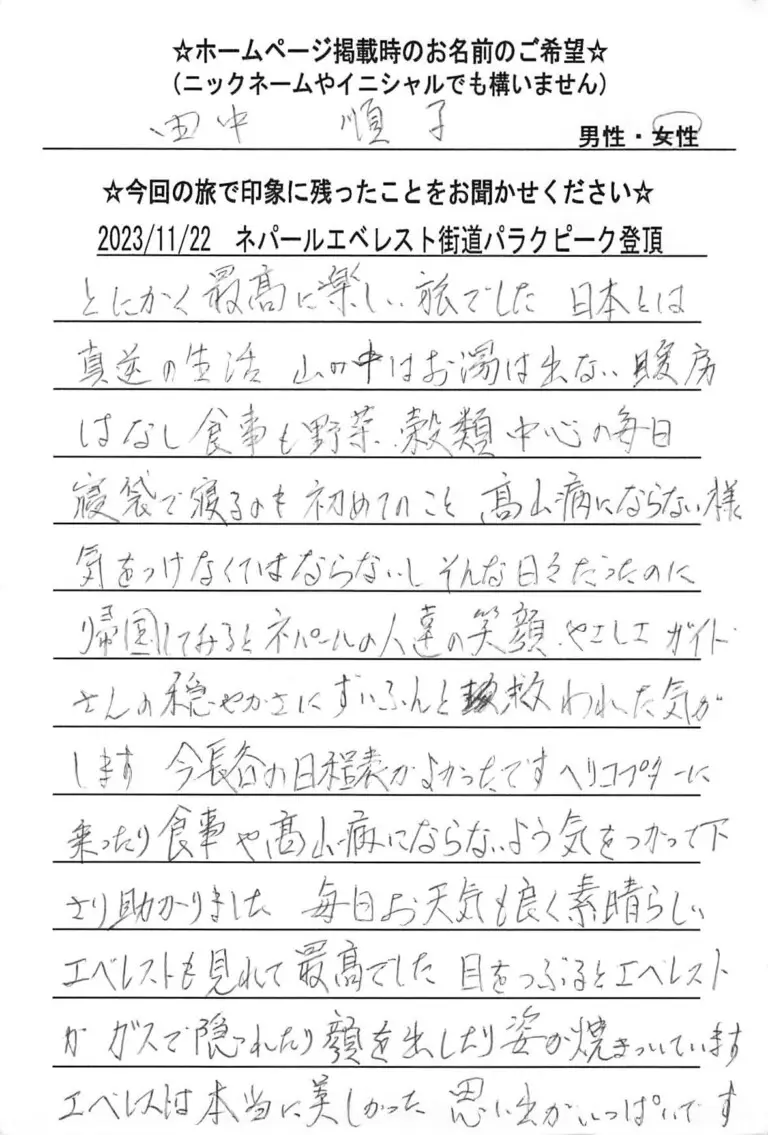 ☆ホームページ掲載時のお名前のご希望☆
(ニックネームやイニシャルでも構いません)
田中 順子 男性・女性
☆今回の旅で印象に残ったことをお聞かせください☆
2023/11/22 ネパールエベレスト街道パラクピーク登頂
とにかく最高に楽しい旅でした 日本とは
真逆の生活 山の中はお湯は出ない暖房
はなし食事も野菜、穀類中心の毎日
寝袋で寝るのも初めてのこと 高山病にならない様
気をつけなくてはならないしそんな日々だったのに
帰国してみるとネパールの人達の笑顔、やさしさガイド
さんの穏やかさにずいぶんと救われた気が
します 今長谷の日程表がよかったですヘリコプターに
乗ったり食事や高山病にならないよう気をつかって下
さり助かりました 毎日お天気も良く素晴らしい
エベレストも見れて最高でした 目をつぶるとエベレスト
が ガスで隠れたり顔を出したり姿が焼きついています
エベレストは本当に美しかった 思い出がいっぱいです